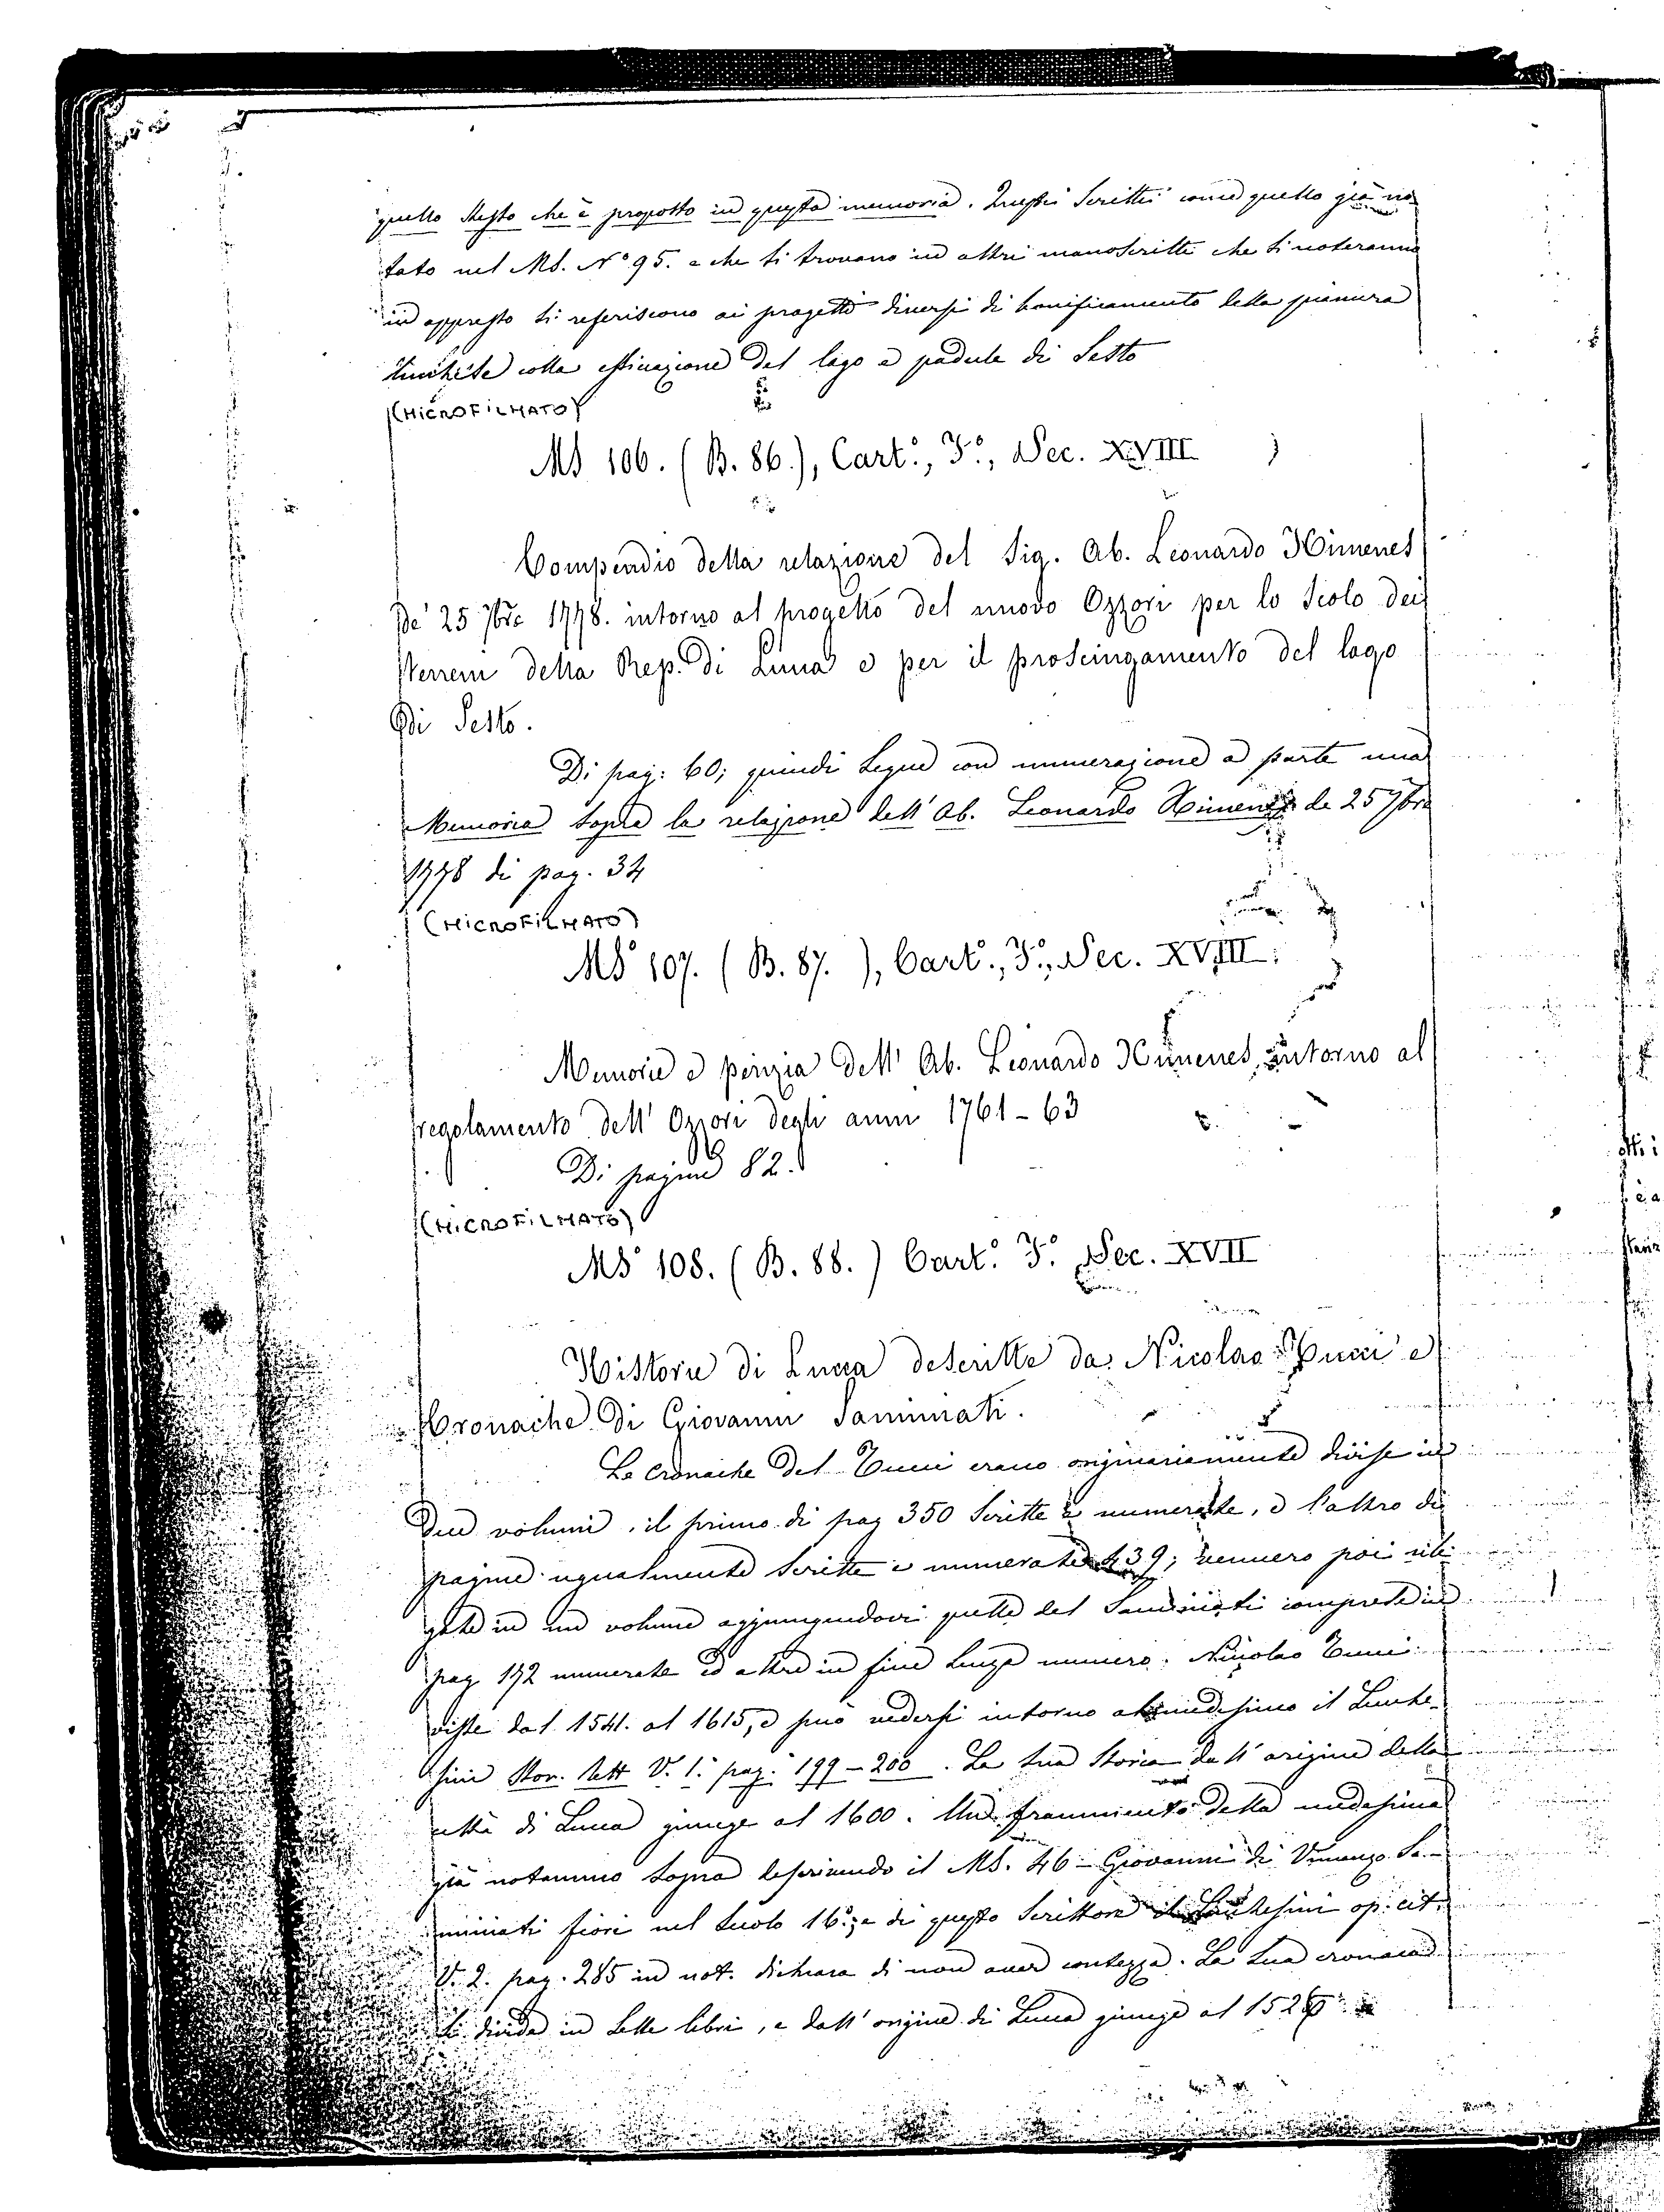 quello stesto che è proposto in questa memoria. Questi scritti come quello già no
tato nel MS. N° 95. e che si trovano in altri manoscritti che si noteranno
in appresso si riferiscono ai progetti diversi di bonificamento della pianura
lucchese colla essicazione del lago e padule di Sesto
(MICROFILMATO)
MS 106. (B. 86.), Cart.°, F.°, Sec. XVIII
Compendio della relazione del Sig. Ab. Leonardo Ximenes
De' 25 7bre 1778. intorno al progetto del nuovo Ozzori per lo scolo dei
terreni della Rep. di Lucca e per il proscingamento del lago
di Sesto.
Di pag: 60; quindi segue con numerazione a parte una
Memoria sopra la relazione dell' Ab. Leonardo Ximenes de 25 7bre
1778 di pag. 34
(MICROFILMATO)
MS 107. (B. 87. ), Cart.°, F.°, Sec. XVIII.
Memorie e perizia dell' Ab. Leonardo Ximenes, intorno al
regolamento dell' Ozzori degli anni 1761-63
Di pagine 82.
(MICROFILMATO)
MS 108. (B. 88.) Cart.° F.° Sec. XVII
Historie di Lucca descritte da Nicolao Tucci e
Cronache di Giovanni Samminiati.
Le cronache del Tucci erano originariamente divise in
due volumi, il primo di pag 350 scritte e numerate, e l'altro di
pagine ugualmente scritte e numerate 439; vennero poi rile
gate in un volume aggiungendovi quelle del Saminiati comprese in
pag 172 numerate ed altre in fine senza numero. Nicolao Tucci
visse dal 1541. al 1615, e può vedersi intorno al medesimo il Lucche
sini Stor. lett V. 1.° pag. 199-200. La sua storia dall' origine della
città di Lucca giunge al 1600. Un frammento della medesima
già notammo sopra descrivendo il MS. 46 - Giovanni di Vincenzo Sa-
miniati fiorì nel secolo 16.°; e di questo scrittore il Lucchesini op. cit.
V. 2. pag. 285 in not. dichiara di non aver contezza. La sua cronaca
si divide in sette libri, e dall' origine di Lucca giunge al